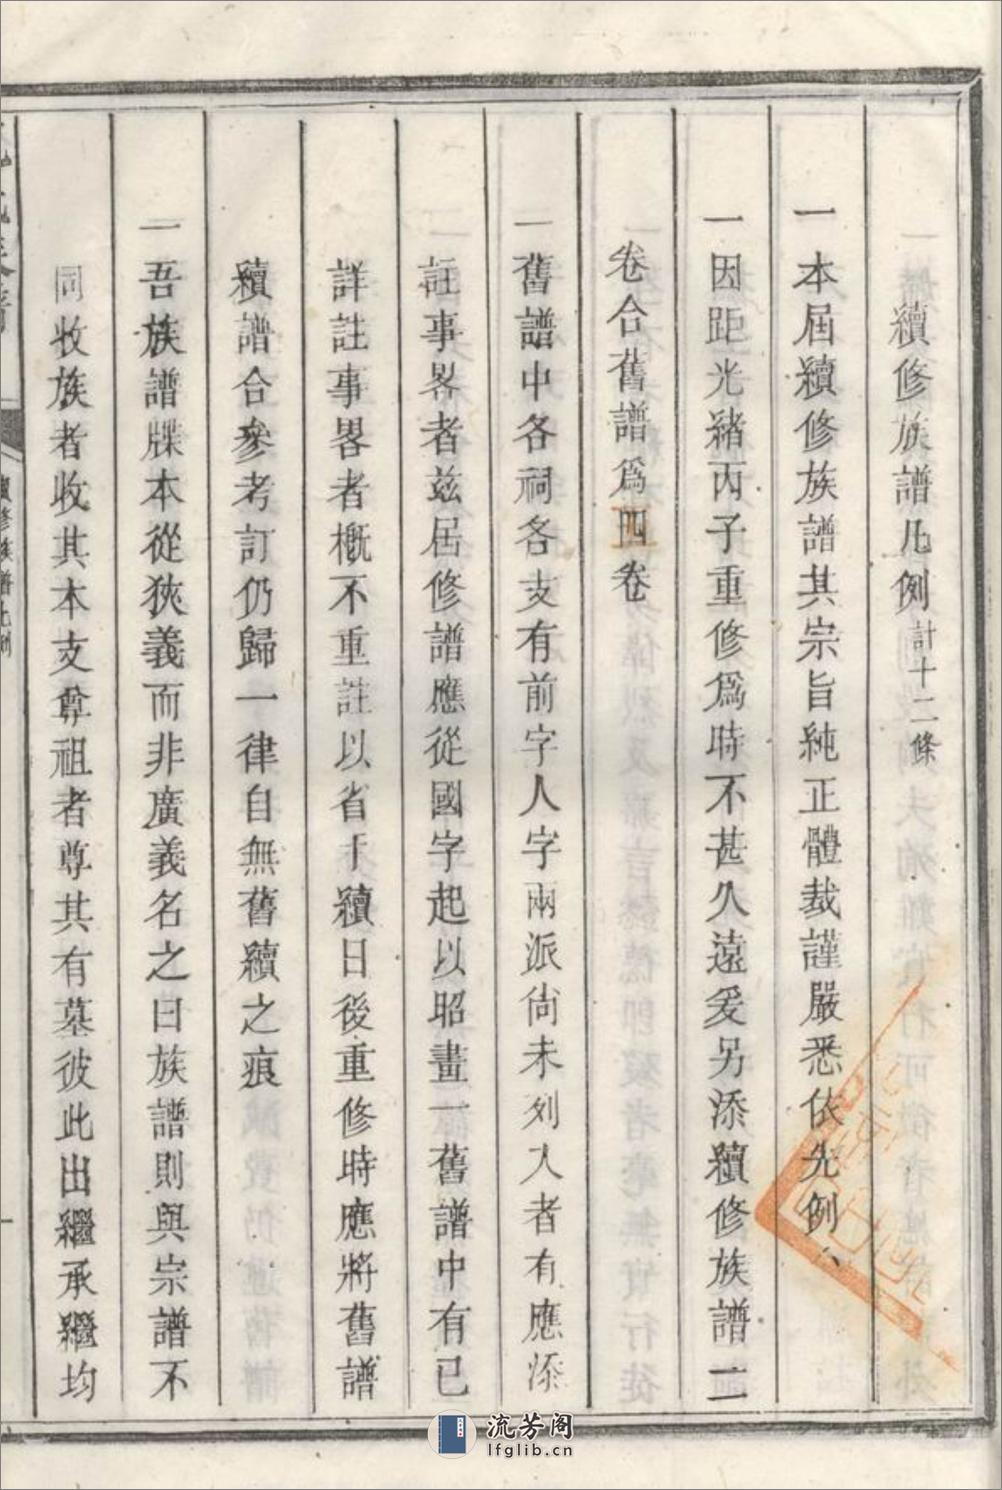 續修族譜凡例計十二條
一本屆續修族譜其宗旨純正體裁謹嚴悉依先例
一因距光緒丙子重修爲時不甚久遠爰另添續修族譜二
卷合舊譜爲四卷
一舊譜中各祠各支有前字人字兩派尙未列入者有應添
註事畧者兹居修譜應從國字起以昭畫一舊譜中有已
詳註事畧者概不重註以省十續日後重修時應將舊譜
續譜合參考訂仍歸一律自無舊續之痕
一吾族譜牒本從狹義而非廣義名之曰族譜則與宗譜不
同收族者收其本支尊祖者尊其有墓彼此出繼承繼均
續修族譜凡例
一
流芳阁
lfglib.cn